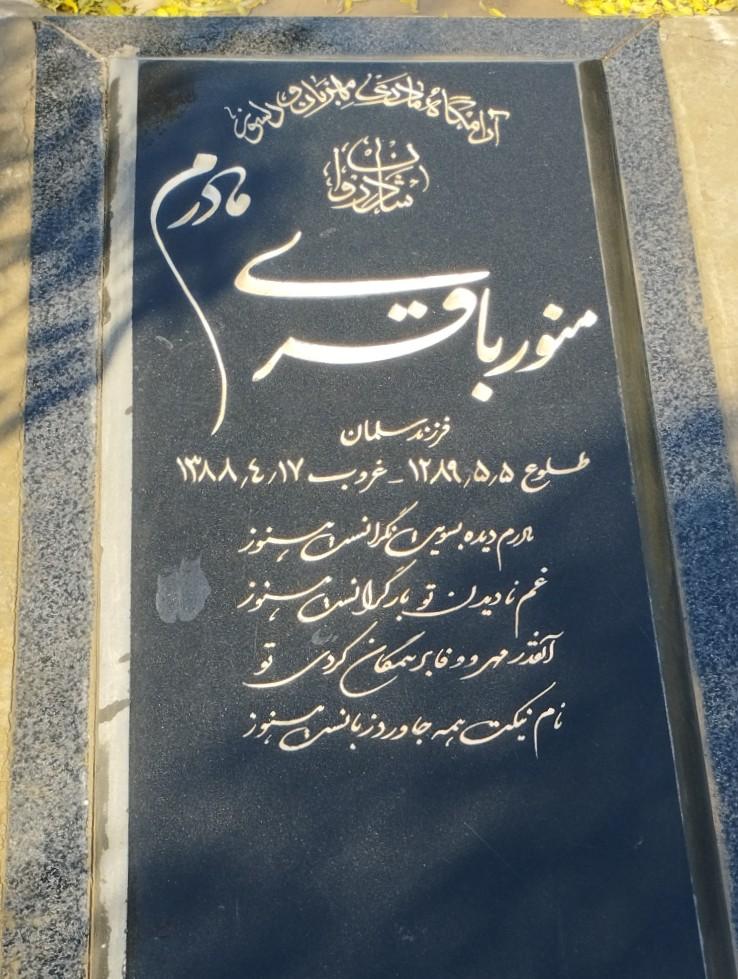 آرامگاه مادری مهربان و دلسوز
شادروان
مادرم
منور باقری
فرزند سلمان
طلوع ۱۲۸۹٫۵٫۵ - غروب ۱۳۸۸٫۴٫۱۷
مادرم دیده بسویت نگرانست هنوز
غم نادیدن تو بار گرانست هنوز
آنقدر مهر و وفا بر همگان کردی تو
نام نیکت همه جا ورد زبانست هنوز